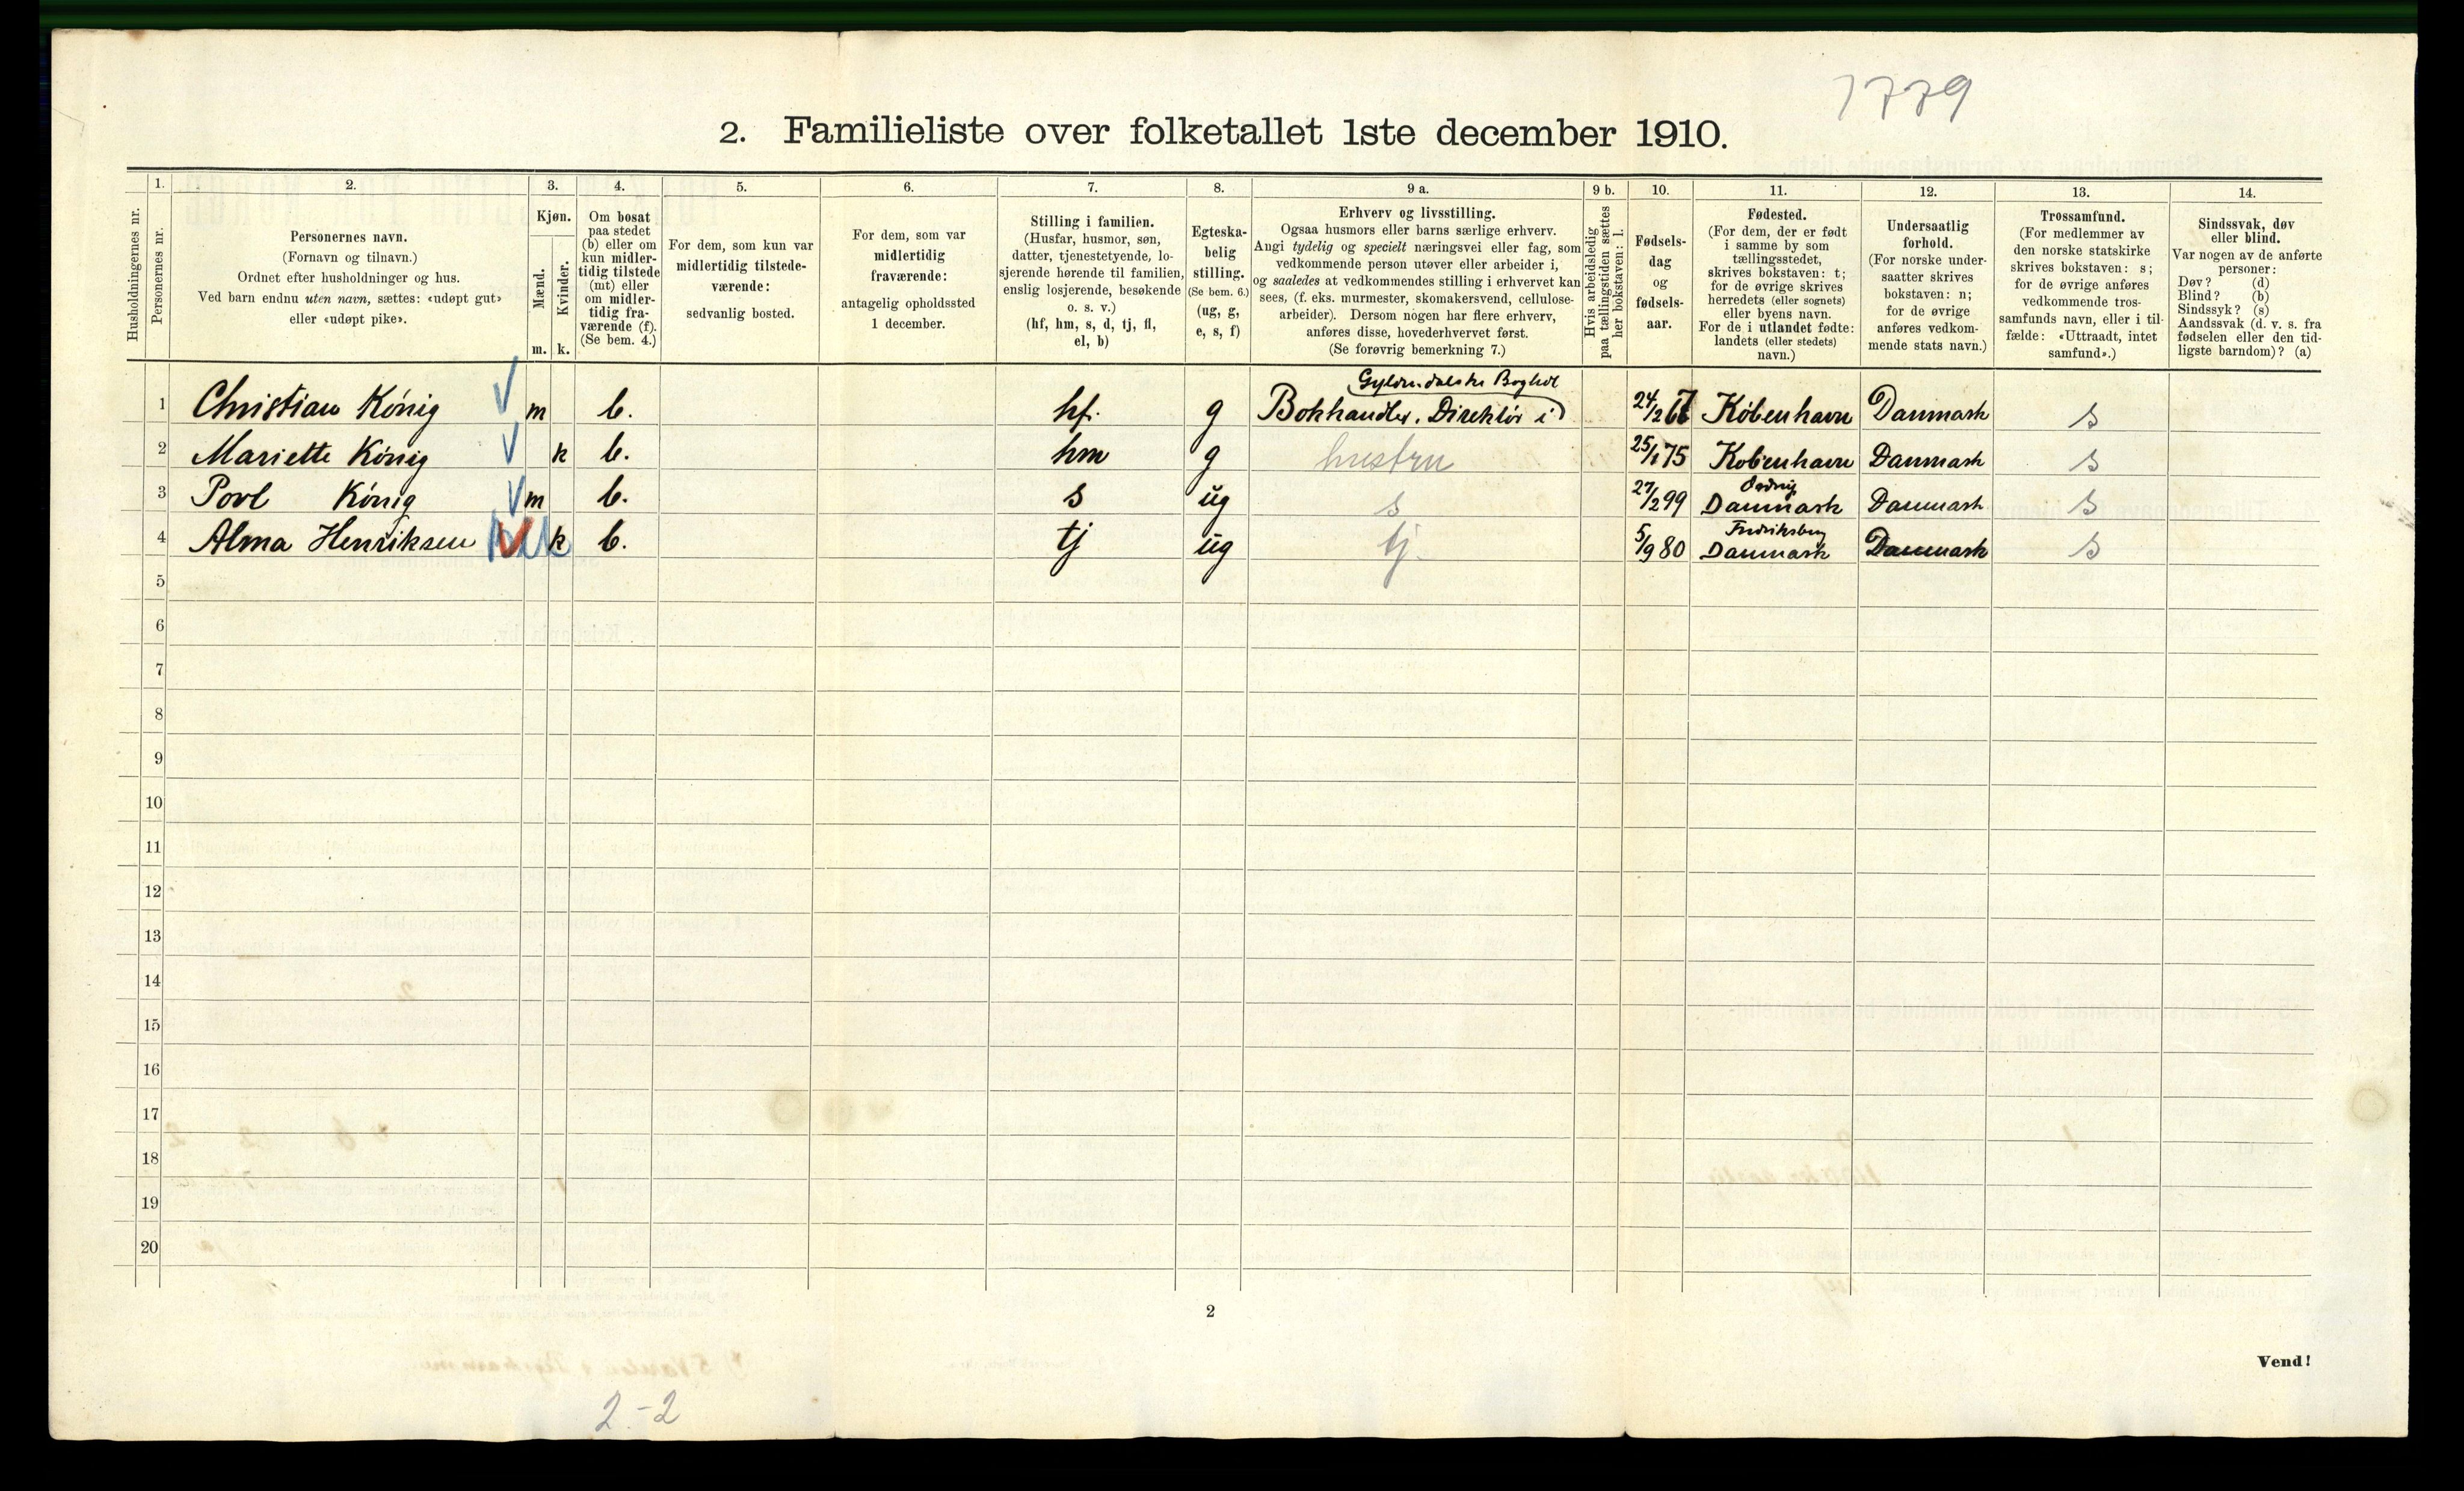 1779
2. Familieliste over folketallet 1ste december 1910.
1. 2. 3. 4. 5. 6. 7. 8. 9 a. 9 b. 10. 11. 12. 13. 14.
Husholdningernes nr.
Personernes nr.
Personernes navn.
(Fornavn og tilnavn.)
Ordnet efter husholdninger og hus.
Ved barn endnu uten navn, sættes: «udøpt gut»
eller «udøpt pike».
Kjøn.
Mænd.
m.
Kvinder.
k.
Om bosat
paa stedet
(b) eller om
kun midler-
tidig tilstede
(mt) eller
om midler-
tidig fra-
værende (f).
(Se bem. 4.)
For dem, som kun var
midlertidig tilstede-
værende:
sedvanlig bosted.
For dem, som var
midlertidig
fraværende:
antagelig opholdssted
1 december.
Stilling i familien.
(Husfar, husmor, søn,
datter, tjenestetyende, lo-
sjerende hørende til familien,
enslig losjerende, besøkende
o. s. v.)
(hf, hm, s, d, tj, fl,
el, b)
Egteska-
belig
stilling.
(Se bem. 6.)
(ug, g,
e, s, f)
Erhverv og livsstilling.
Ogsaa husmors eller barns særlige erhverv.
Angi tydelig og specielt næringsvei eller fag, som
vedkommende person utøver eller arbeider i,
og saaledes at vedkommendes stilling i erhvervet kan
sees, (f. eks. murmester, skomakersvend, cellulose-
arbeider). Dersom nogen har flere erhverv,
anføres disse, hovederhvervet først.
(Se forøvrig bemerkning 7.)
Hvis arbeidsledig
paa tællingstiden sættes
her bokstaven: l.
Fødsels-
dag
og
fødsels-
aar.
Fødested.
(For dem, der er født
i samme by som
tællingsstedet,
skrives bokstaven: t;
for de øvrige skrives
herredets (eller sognets)
eller byens navn.
For de i utlandet fødte:
landets (eller stedets)
navn.)
Undersaatlig
forhold.
(For norske under-
saatter skrives
bokstaven: n;
for de øvrige
anføres vedkom-
mende stats navn.)
Trossamfund.
(For medlemmer av
den norske statskirke
skrives bokstaven: s;
for de øvrige anføres
vedkommende tros-
samfunds navn, eller i til-
fælde: «Uttraadt, intet
samfund».)
Sindssvak, døv
eller blind.
Var nogen av de anførte
personer:
Døv? (d)
Blind? (b)
Sindssyk? (s)
Aandssvak (d. v. s. fra
fødselen eller den tid-
ligste barndom)? (a)
Gyldendalske Boghdl
1 Christian König m b. hf. g Bokhandler. Direktör i 24/2 67 København Danmark s
2 Mariette König k b. hm g hustru 25/1 75 København Danmark s
Ordrup
3 Povl König m b. s ug s 27/2 99 Danmark Danmark s
Fredriksberg
4 Alma Henriksen k b. tj ug tj. 5/9 80 Danmark Danmark s
5
6
7
8
9
10
11
12
13
14
15
16
17
18
19
20
2
Vend!
2-2